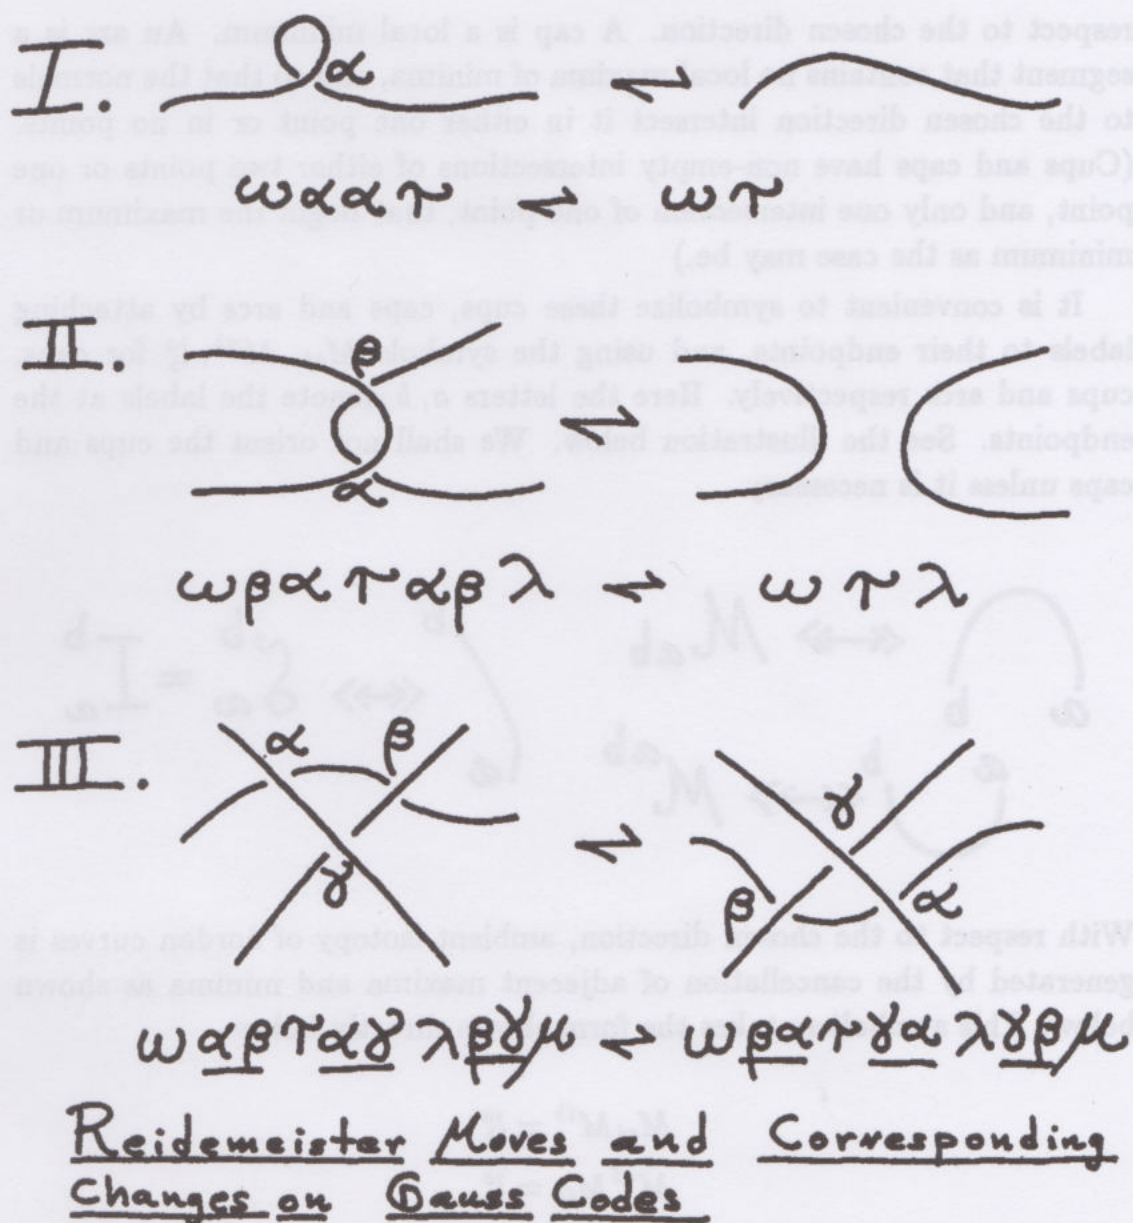 I.
α
ωαατ ⇌ ωτ
II.
β
α
ωβατ αβλ ⇌ ωτλ
III.
α β
γ
γ
β α
ωαβταγλβγμ ⇌ ωβατγαλγβμ
Reidemeister Moves and Corresponding
Changes on Gauss Codes